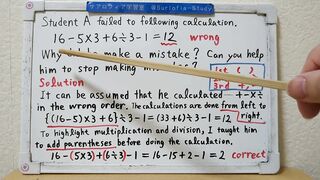 ケアロジィ学習室 @Suriofia-Study
Student A failed to following calculation.
16-5×3+6÷3-1=12 wrong
Why make a mistake? Can you help
him to stop making
Solution
It can be assumed that he calculated + - × ÷
in the wrong order. The calculations are done from left to
{(16-5)×3+6}÷3-1=(33+6)÷3-1=12 right.
To highlight multiplication and division, I taught him
to add parentheses before doing the calculation.
16-(5×3)+(6÷3)-1=16-15+2-1=2 correct